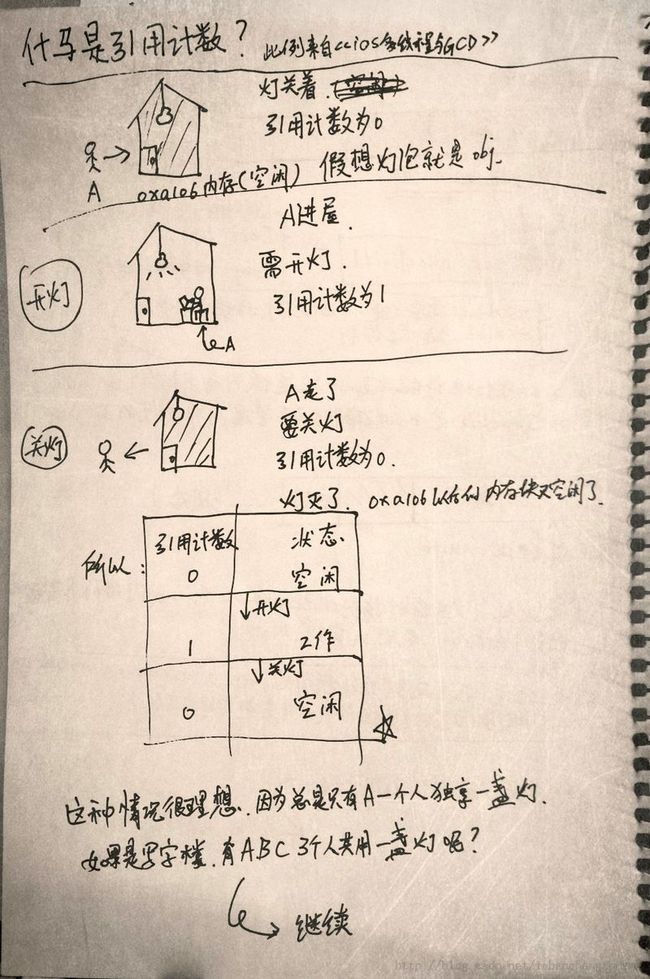 什马是引用计数? 此例来自<<ios多线程与GCD>>
灯关着.
引用计数为0
A
0xa106内存(空闲) 假想灯泡就是obj.
A进屋.
开灯
需开灯.
引用计数为1
A
A走了
关灯
要关灯
引用计数为0.
灯灭了. 0xa106以后的内存块又空闲了.
所以:
引用计数 状态
0 空闲
↓开灯
1 工作
↓关灯
0 空闲
这种情况很理想. 因为总是只有A一个人独享一盏灯.
如果是写字楼. 有ABC 3个人共用一盏灯呢?
继续